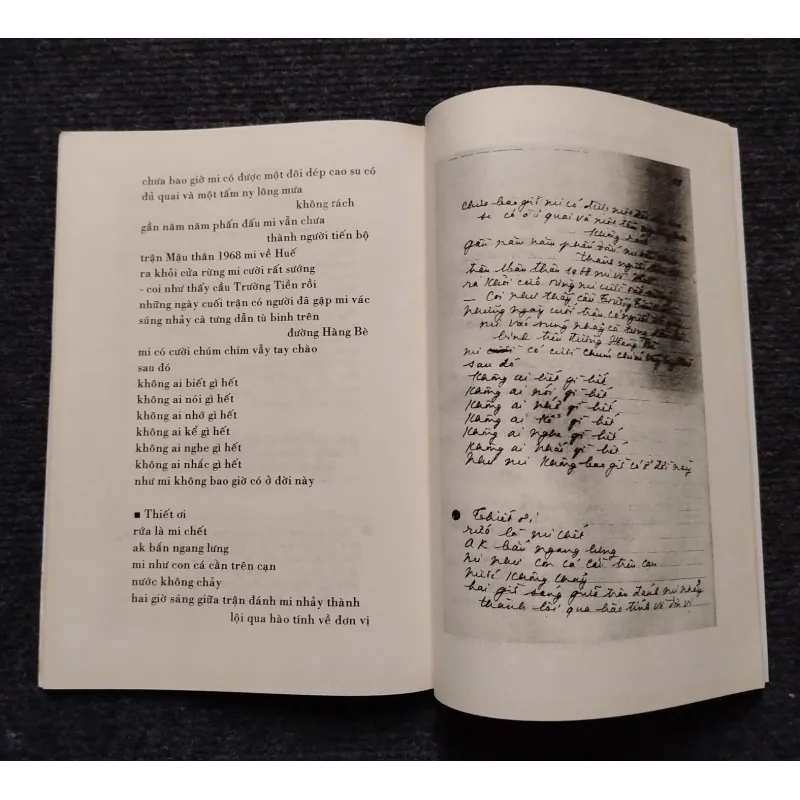 chưa bao giờ mi có được một đôi dép cao su có
đủ quai và một tấm ny lông mưa
không rách
gần năm năm phấn đấu mi vẫn chưa
thành người tiến bộ
trận Mậu thân 1968 mi về Huế
ra khỏi cửa rừng mi cười rất sướng
- coi như thấy cầu Trường Tiền rồi
những ngày cuối trận có người đã gặp mi vác
súng nhảy cà tưng dẫn tù binh trên
đường Hàng Bè
mi có cười chúm chím vẫy tay chào
sau đó
không ai biết gì hết
không ai nói gì hết
không ai nhớ gì hết
không ai kể gì hết
không ai nghe gì hết
không ai nhắc gì hết
như mi không bao giờ có ở đời này
■ Thiết ơi
rứa là mi chết
ak bắn ngang lưng
mi như con cá cằn trên cạn
nước không chảy
hai giờ sáng giữa trận đánh mi nhảy thành
lội qua hào tính về đơn vị
chưa bao giờ mi có được một đôi
quai và một tấm
không rách
gần năm năm phấn đấu mi
thành người
trận Mậu thân 1968 mi về
ra khỏi cửa rừng mi cười
- Coi như thấy cầu Trường
những ngày cuối trận có người
mi vác súng nhảy cà tưng
binh trên đường Hàng Bè
mi có cười chúm chím
sau đó
không ai biết gì hết
không ai nói gì hết
không ai nhớ gì hết
không ai kể gì hết
không ai nghe gì hết
không ai nhắc gì hết
như mi không bao giờ có ở đời này
● Thiết ơi
rứa là mi chết
AK bắn ngang lưng
mi như con cá cằn trên cạn
nước không chảy
hai giờ sáng giữa trận đánh mi nhảy
thành lội qua hào tính về đơn vị